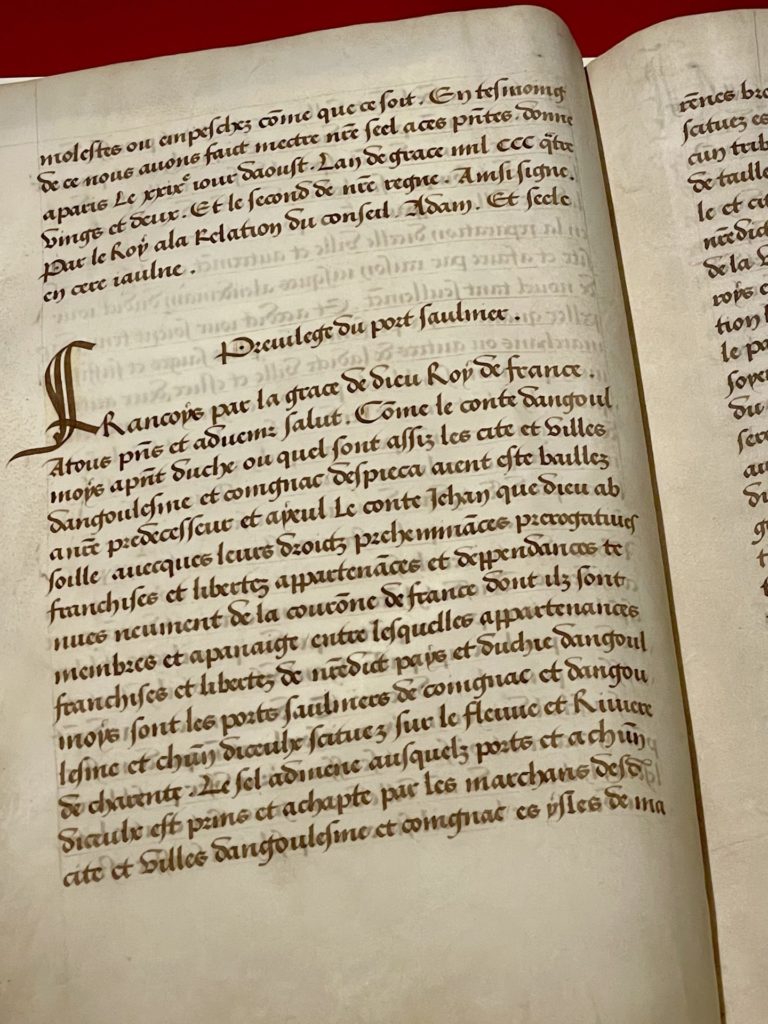 molestes ou empeschez cõme que ce soit. En tesmoing
de ce nous avons faict mectre nr̃e seel a ces pñtes. donne
a paris Le xxixe iour daoust. Lan de grace mil CCC q̃tre
vings et deux. Et le second de nr̃e regne. Ainsi signe.
Par le Roy a la Relation du conseil. Adam. Et seele
en cere iaulne.
Previlege du port saulnier.
FRancoys par la grace de dieu Roy de france.
Atous pñs et advenir salut. Cõme le conte dangoul
moys apñt duche ou quel sont assiz les cite et villes
dangoulesme et coignac despieca aient este baillez
a nr̃e predecesseur et ayeul Le conte Jehan que dieu ab
soille avecques leurs droitz prehemināces prerogatives
franchises et libertez appartenāces et deppendances te
nues neument de la courõne de france dont ilz sont
membres et apanaige entre lesquelles appartenances
franchises et libertez de nr̃edict pays et duchie dangoul
moys sont les ports saulniers de coignac et dangou
lesme et chũn diceulx scituez sur le fleuve et Riviere
de charente. Le sel admene ausquelz ports et a chũn
diceulx est prins et achapte par les marchans desd.
cite et villes dangoulesme et coignac es ysles de ma
scituez es
de taille
le et cit
de la v
roys e
tion l
le pa
soye
du